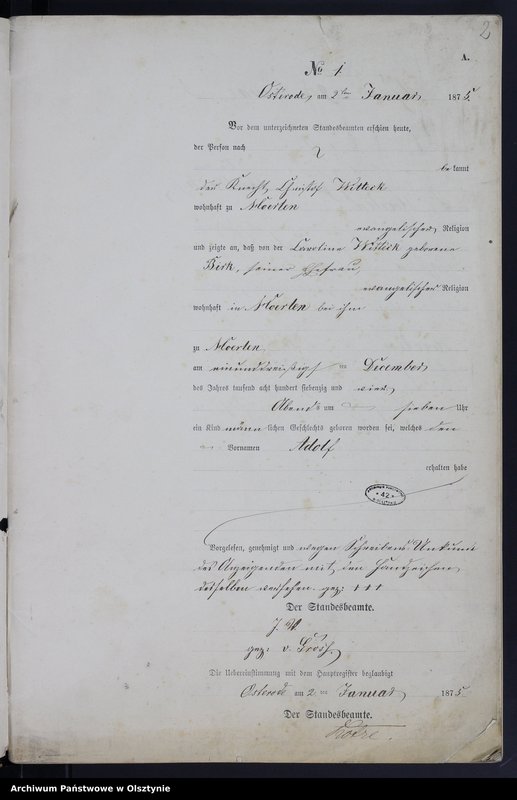 2
A.
No 1
Osterode, am 2ten Januar 1875.
Vor dem unterzeichneten Standesbeamten erschien heute,
der Person nach
bekannt
der Knecht Christof Wittek
wohnhaft zu Moerten
evangelischer Religion
und zeigte an, daß von der Caroline Wittek geborene
Birk, seiner Ehefrau,
evangelischer Religion
wohnhaft in Moerten bei ihm
zu Moerten
am einunddreißigsten December
des Jahres tausend acht hundert siebenzig und vier
Abends um sieben Uhr
ein Kind männlichen Geschlechts geboren worden sei, welches den
Vornamen Adolf
erhalten habe
42
Vorgelesen, genehmigt und wegen Schreibens Unkunde
des Anzeigenden mit den Handzeichen
desselben versehen. gez: +++
Der Standesbeamte.
gez: v.
Die Uebereinstimmung mit dem Hauptregister beglaubigt
Osterode am 2ten Januar 1875.
Der Standesbeamte.
Archiwum Państwowe w Olsztynie